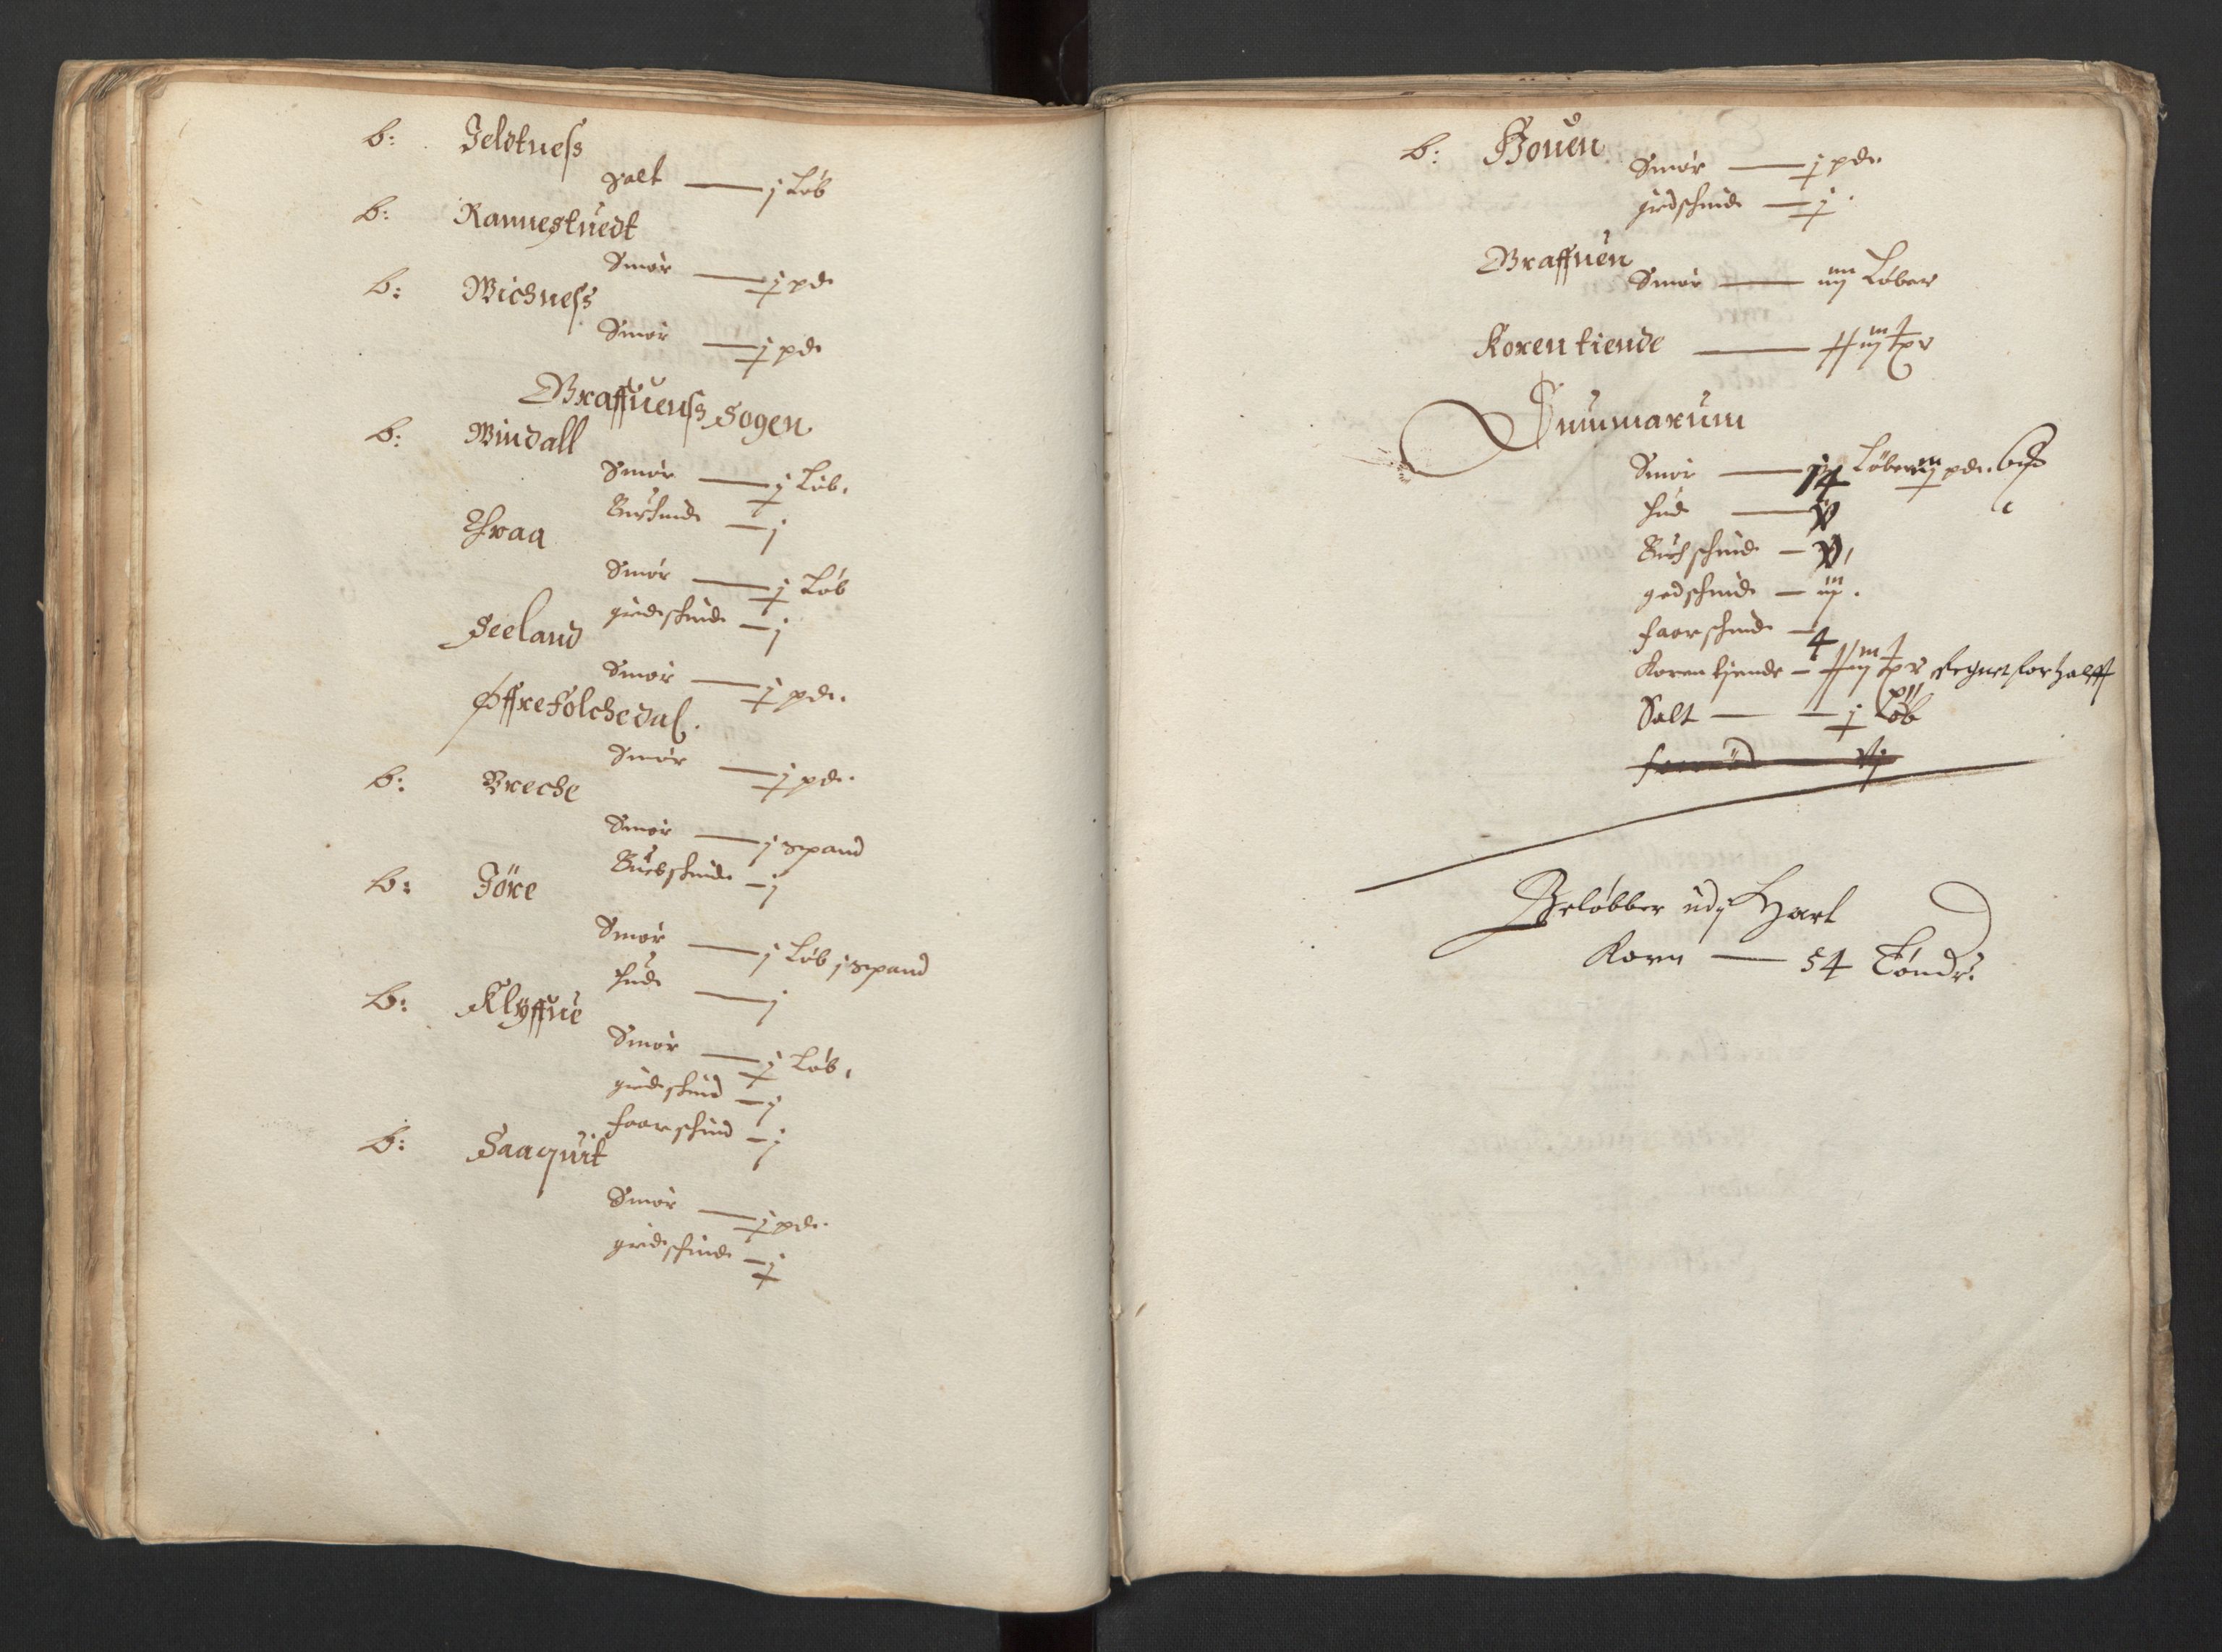 b: Jeldtness
Salt — j Løb
b: Rannestuedt
Smør — j pd
b: Wichness
Smør — j pd
Graffuenss Sogen
b: Windall
Smør — j Løb.
Buchskind — j
Traa
Smør — j Løb
giedeskind — j
Seeland
Smør — j pd.
Øffre Folchedal.
Smør — j pd.
b: Breche
Smør — j spand
Buchskind — j
b: Jöre
Smør — j Løb j spand
hud — j
b: Klyffue
Smør — j Løb.
giedeskind — j
faarskind — j
b: Saaquit
Smør — j pd.
giedeskind — j
b: Houen
Smør — j pd.
giedschind — j.
Graffuen
Smør — iiij Løber
Koren tiende
Summarum
Smør — 14 Løber iij pd.
hud — V
Buchschind — V
gedschind — iij.
faarschind — 4
Koren tiende — Regnet for halff
Salt — j Løb
Beløbber udj Hart
Korn — 54 Tønder